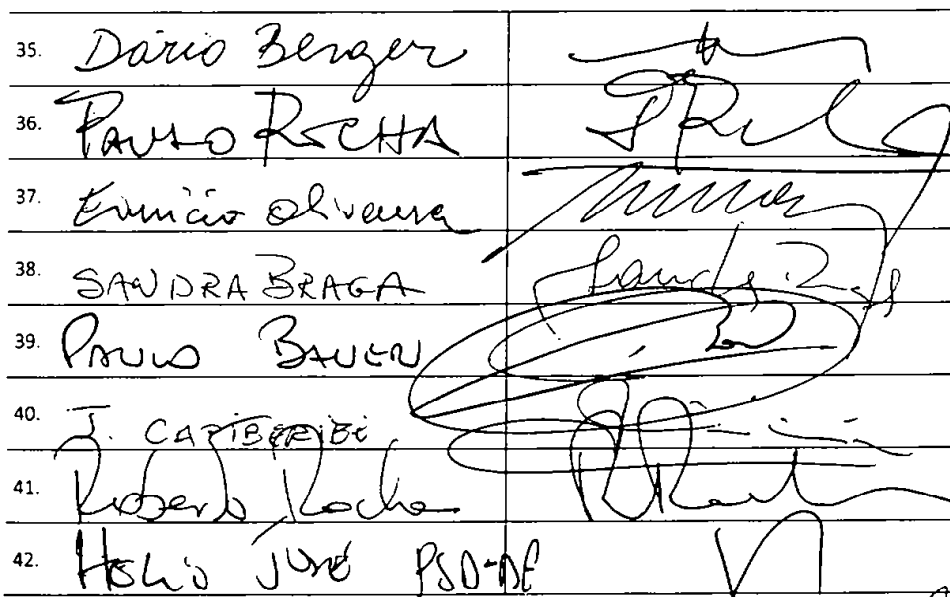 35. Dário Berger
36. PAULO ROCHA
37. Eunício Oliveira
38. SANDRA BRAGA
39. PAULO BAUER
40. J. CAPIBERIBE
41. Roberto Rocha
42. Hélio José PSD-DF